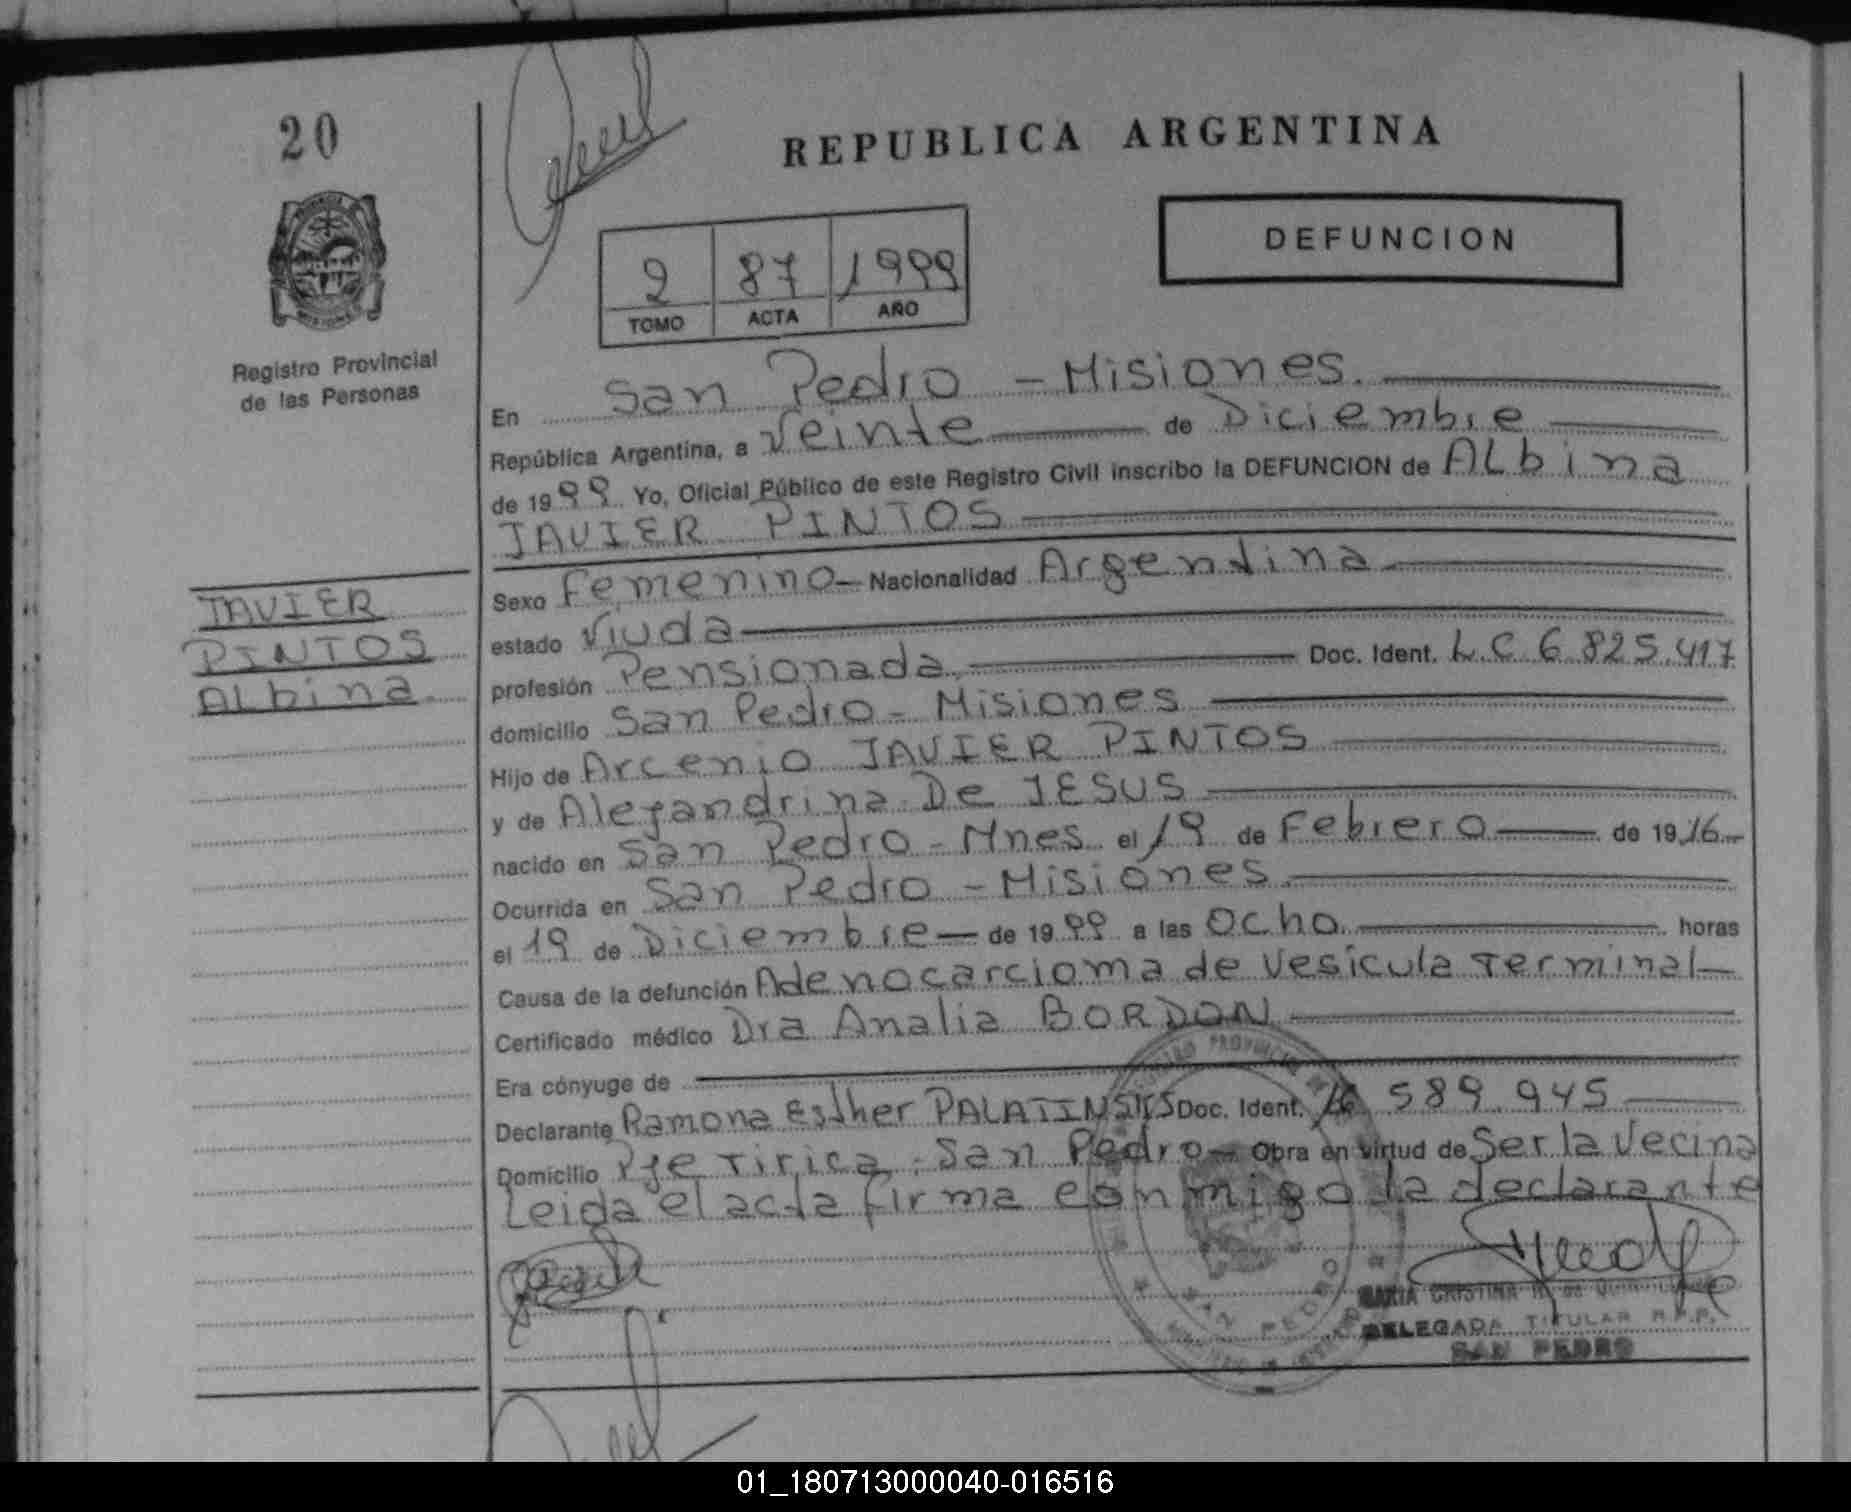 20
REPUBLICA ARGENTINA
DEFUNCION
2 87 1999
TOMO ACTA AÑO
Registro Provincial
de las Personas
En San Pedro - Misiones.
República Argentina, a Veinte de Diciembre
de 1999 Yo, Oficial Público de este Registro Civil inscribo la DEFUNCION de Albina
JAVIER PINTOS
JAVIER
PINTOS
Albina
Sexo Femenino Nacionalidad Argentina
estado Viuda
profesión Pensionada. Doc. Ident. L.C 6.825.417
domicilio San Pedro - Misiones
Hijo de Arcenio JAVIER PINTOS
y de Alejandrina De JESUS
nacido en San Pedro - Mnes. el 19 de Febrero de 1916
Ocurrida en San Pedro - Misiones.
el 19 de Diciembre de 1999 a las Ocho horas
Causa de la defunción Adenocarcioma de Vesicula Terminal
Certificado médico Dra Analia BORDON
Era cónyuge de
Declarante Ramona Esther Doc. Ident. 16 589.945
Domicilio Pje Tirica - San Pedro Obra en virtud de Ser la Vecina
Leida el acta firma conmigo la declarante
SAN PEDRO
MARIA CRISTINA
DELEGADA TITULAR R.P.P.
SAN PEDRO
01_180713000040-016516